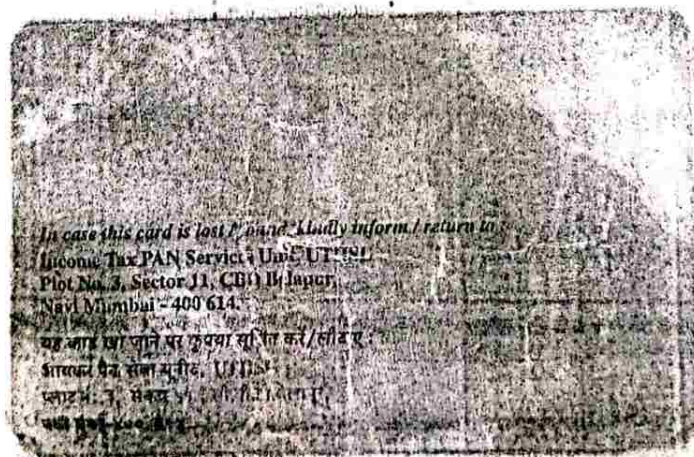 In case this card is lost / found, kindly inform / return to :
Income Tax PAN Services Unit, UTITSL
Plot No. 3, Sector 11, CBD Belapur,
Navi Mumbai - 400 614.
यह कार्ड खो जाने पर कृपया सूचित करें/लौटाएं :
आयकर पैन सेवा यूनीट, UTITSL
प्लाट नं. ३, सेक्टर